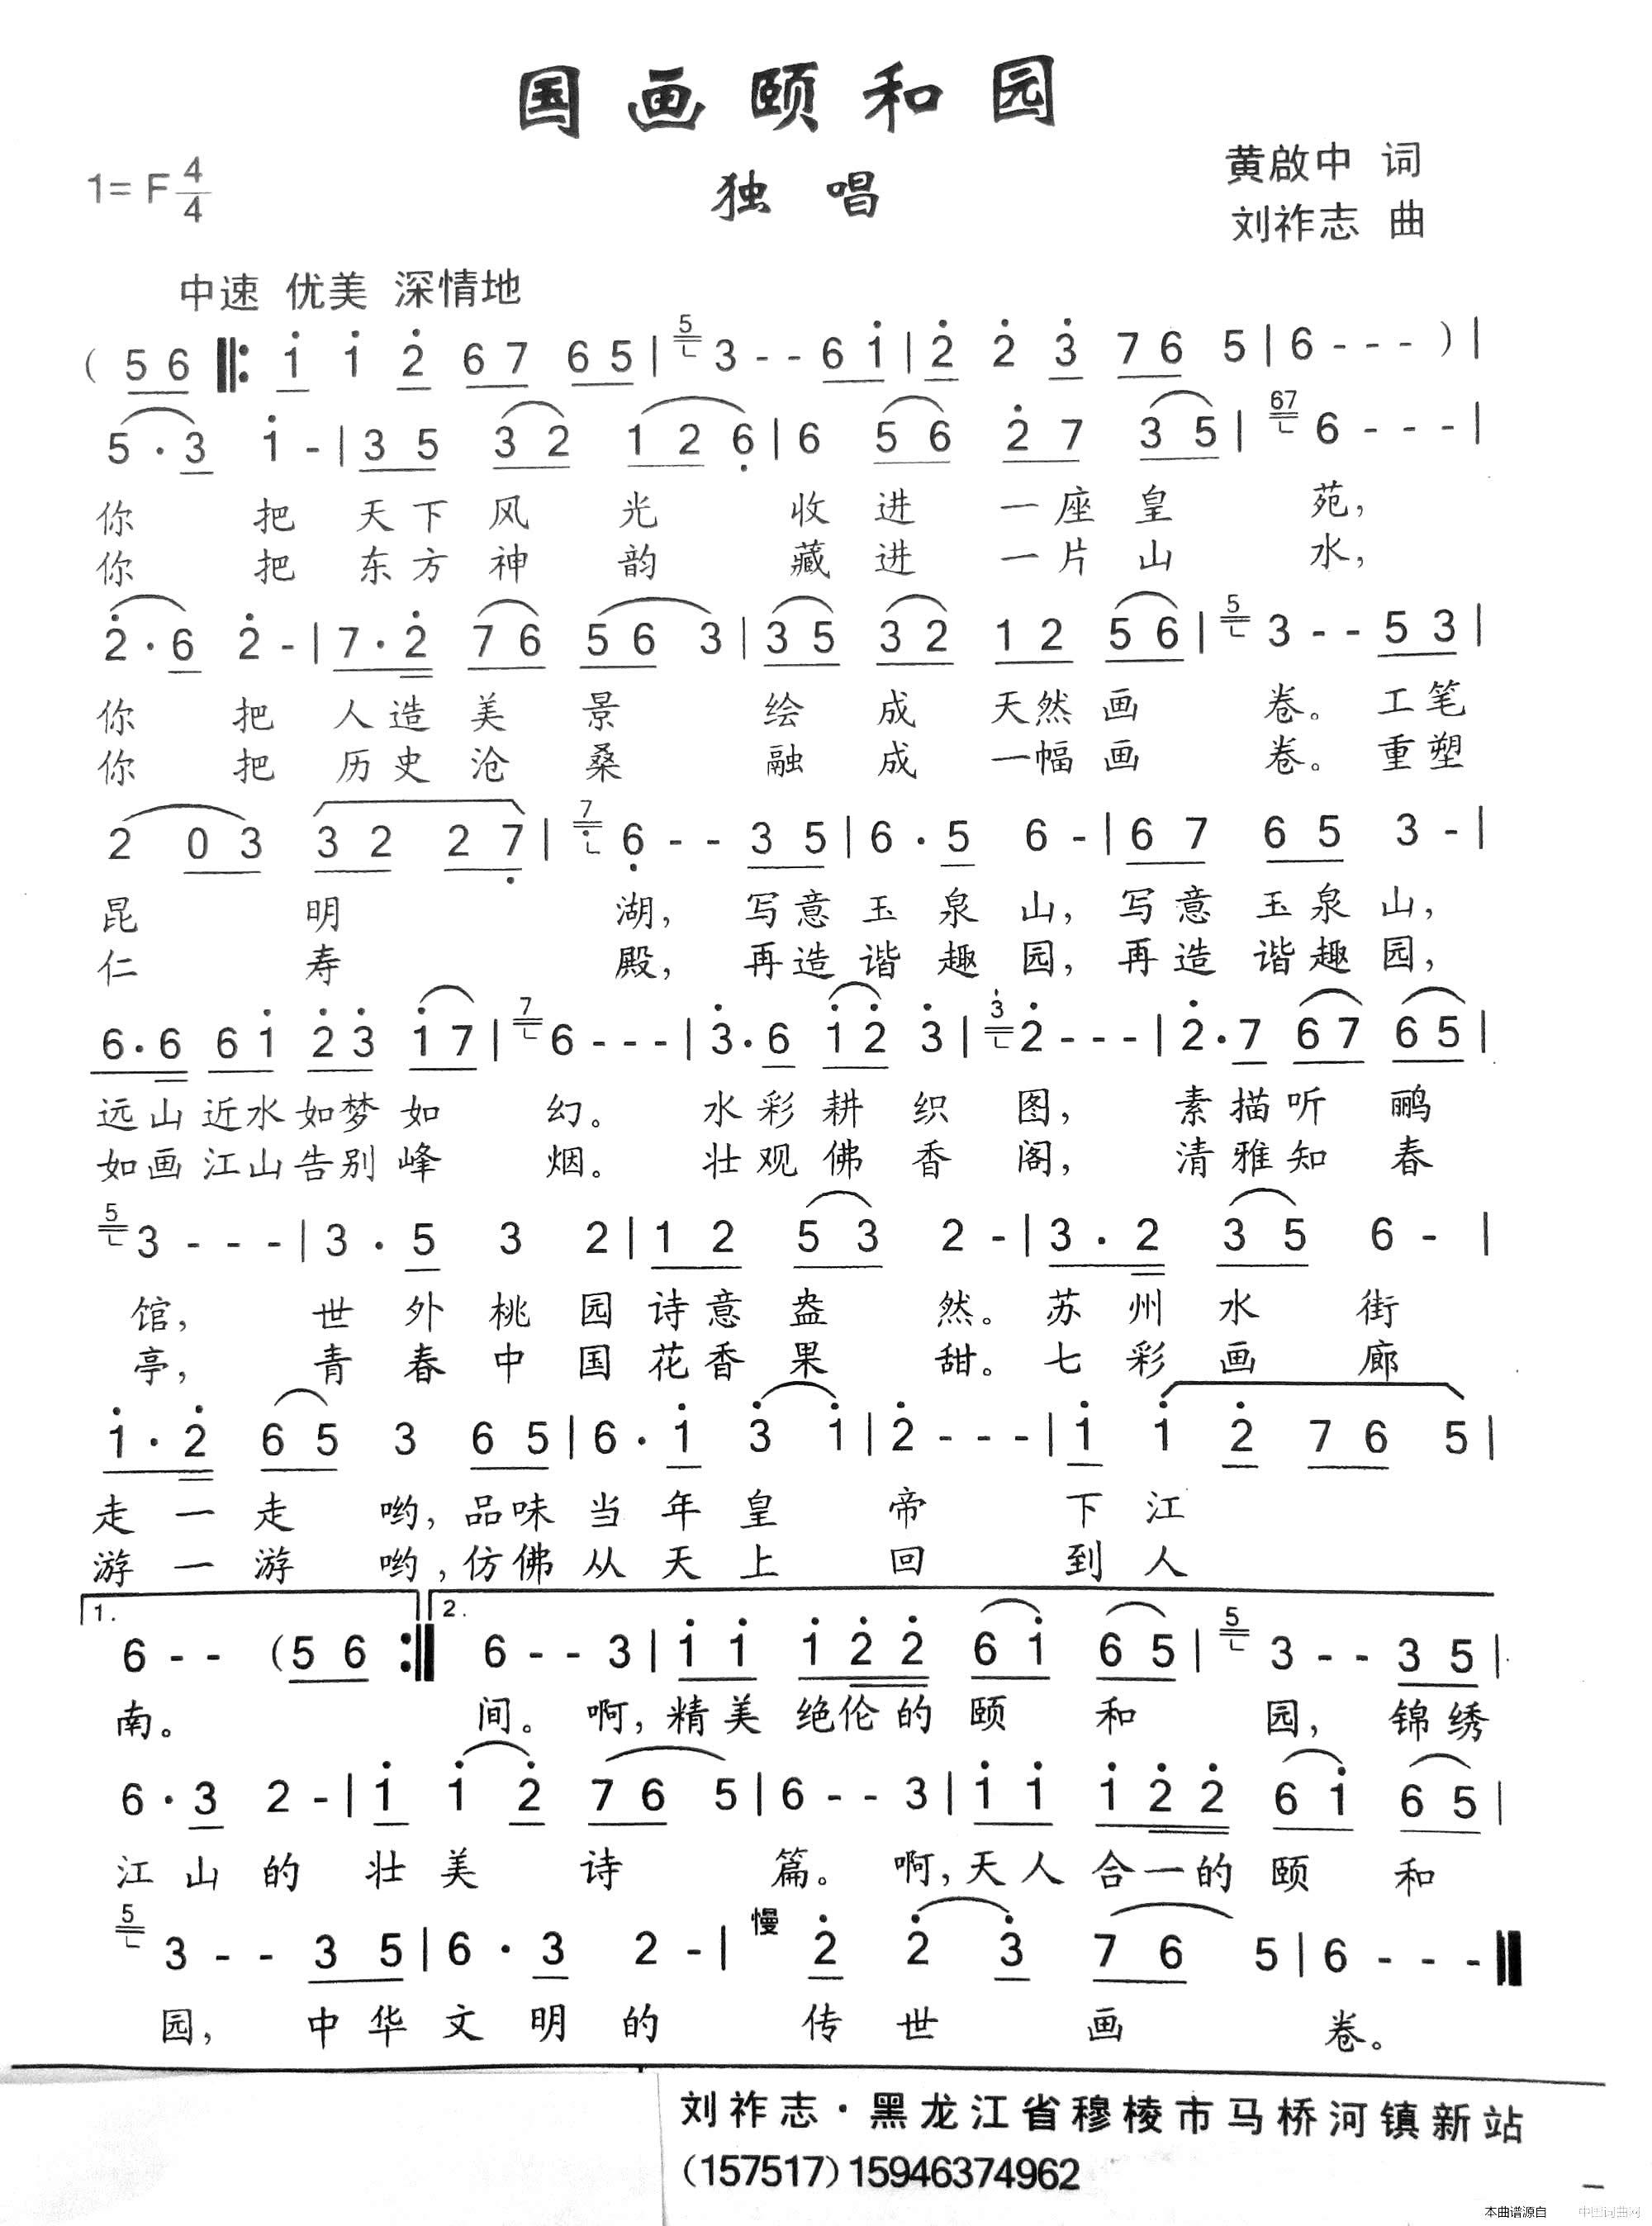 国画颐和园
1=F 4/4
独唱
黄啟中 词
刘祚志 曲
中速 优美 深情地
( 5 6 ‖: i i 2̇ 6 7 6 5 | 5 3 - - 6 i | 2̇ 2̇ 3̇ 7 6 5 | 6 - - - ) |
5 · 3 i - | 3 5 3 2 1 2 6̣ | 6 5 6 2̇ 7 3 5 | 67 6 - - - |
你 把 天下 风 光 收 进 一座 皇 苑,
你 把 东方 神 韵 藏 进 一片 山 水,
2̇ · 6 2̇ - | 7 · 2̇ 7 6 5 6 3 | 3 5 3 2 1 2 5 6 | 5 3 - - 5 3 |
你 把 人造 美 景 绘 成 天然 画 卷。工笔
你 把 历史 沧 桑 融 成 一幅 画 卷。重塑
2 0 3 3 2 2 7̣ | 7̣ 6̣ - - 3 5 | 6 · 5 6 - | 6 7 6 5 3 - |
昆 明 湖, 写意 玉 泉 山, 写意 玉泉 山,
仁 寿 殿, 再造 谐 趣 园, 再造 谐趣 园,
6 · 6 6 i 2̇ 3̇ i 7 | 7 6 - - - | 3̇ · 6 i 2̇ 3̇ | 3̇ 2̇ - - - | 2̇ · 7 6 7 6 5 |
远山 近水 如梦 如 幻。 水彩 耕 织 图, 素描 听 鹂
如画 江山 告别 峰 烟。 壮观 佛 香 阁, 清雅 知 春
5 3 - - - | 3 · 5 3 2 | 1 2 5 3 2 - | 3 · 2 3 5 6 - |
馆, 世 外 桃 园 诗意 盎 然。苏 州 水 街
亭, 青 春 中 国 花香 果 甜。七 彩 画 廊
i · 2̇ 6 5 3 6 5 | 6 · i 3̇ i | 2̇ - - - | i i 2̇ 7 6 5 |
走 一 走 哟,品味 当 年 皇 帝 下 江
游 一 游 哟,仿佛 从 天 上 回 到 人
1. 2.
6 - - (5 6 :‖ 6 - - 3 | i i i 2̇ 2̇ 6 i 6 5 | 5 3 - - 3 5 |
南。 间。 啊,精美 绝伦的 颐 和 园, 锦绣
6 · 3 2 - | i i 2̇ 7 6 5 | 6 - - 3 | i i i 2̇ 2̇ 6 i 6 5 |
江山 的 壮 美 诗 篇。 啊,天人 合一的 颐 和
5 3 - - 3 5 | 6 · 3 2 - | 慢 2̇ 2̇ 3̇ 7 6 5 | 6 - - - ‖
园, 中华 文 明 的 传 世 画 卷。
刘祚志·黑龙江省穆棱市马桥河镇新站
(157517)15946374962
本曲谱源自 中国词曲网